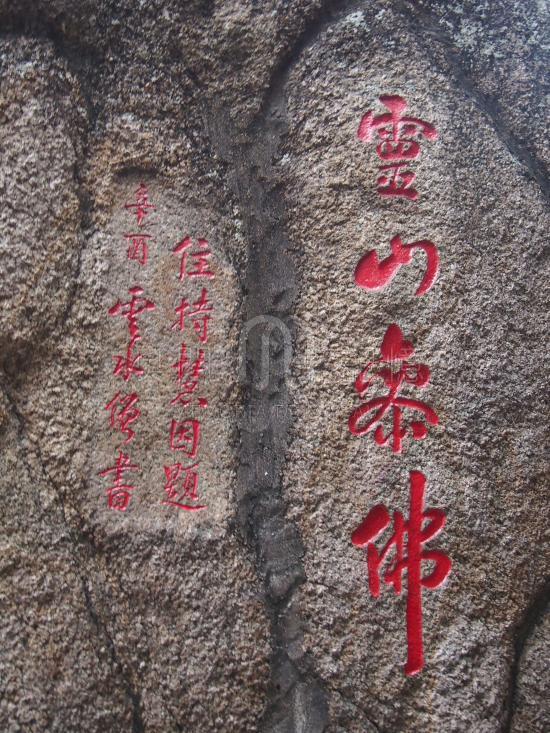 靈山叅佛
住持慧因題
辛酉 雲水僧書